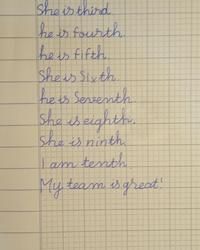 She is third.
he is fourth.
he is fifth.
She is Sixth.
he is Seventh.
She is eighth.
She is ninth.
I am tenth.
My team is great!